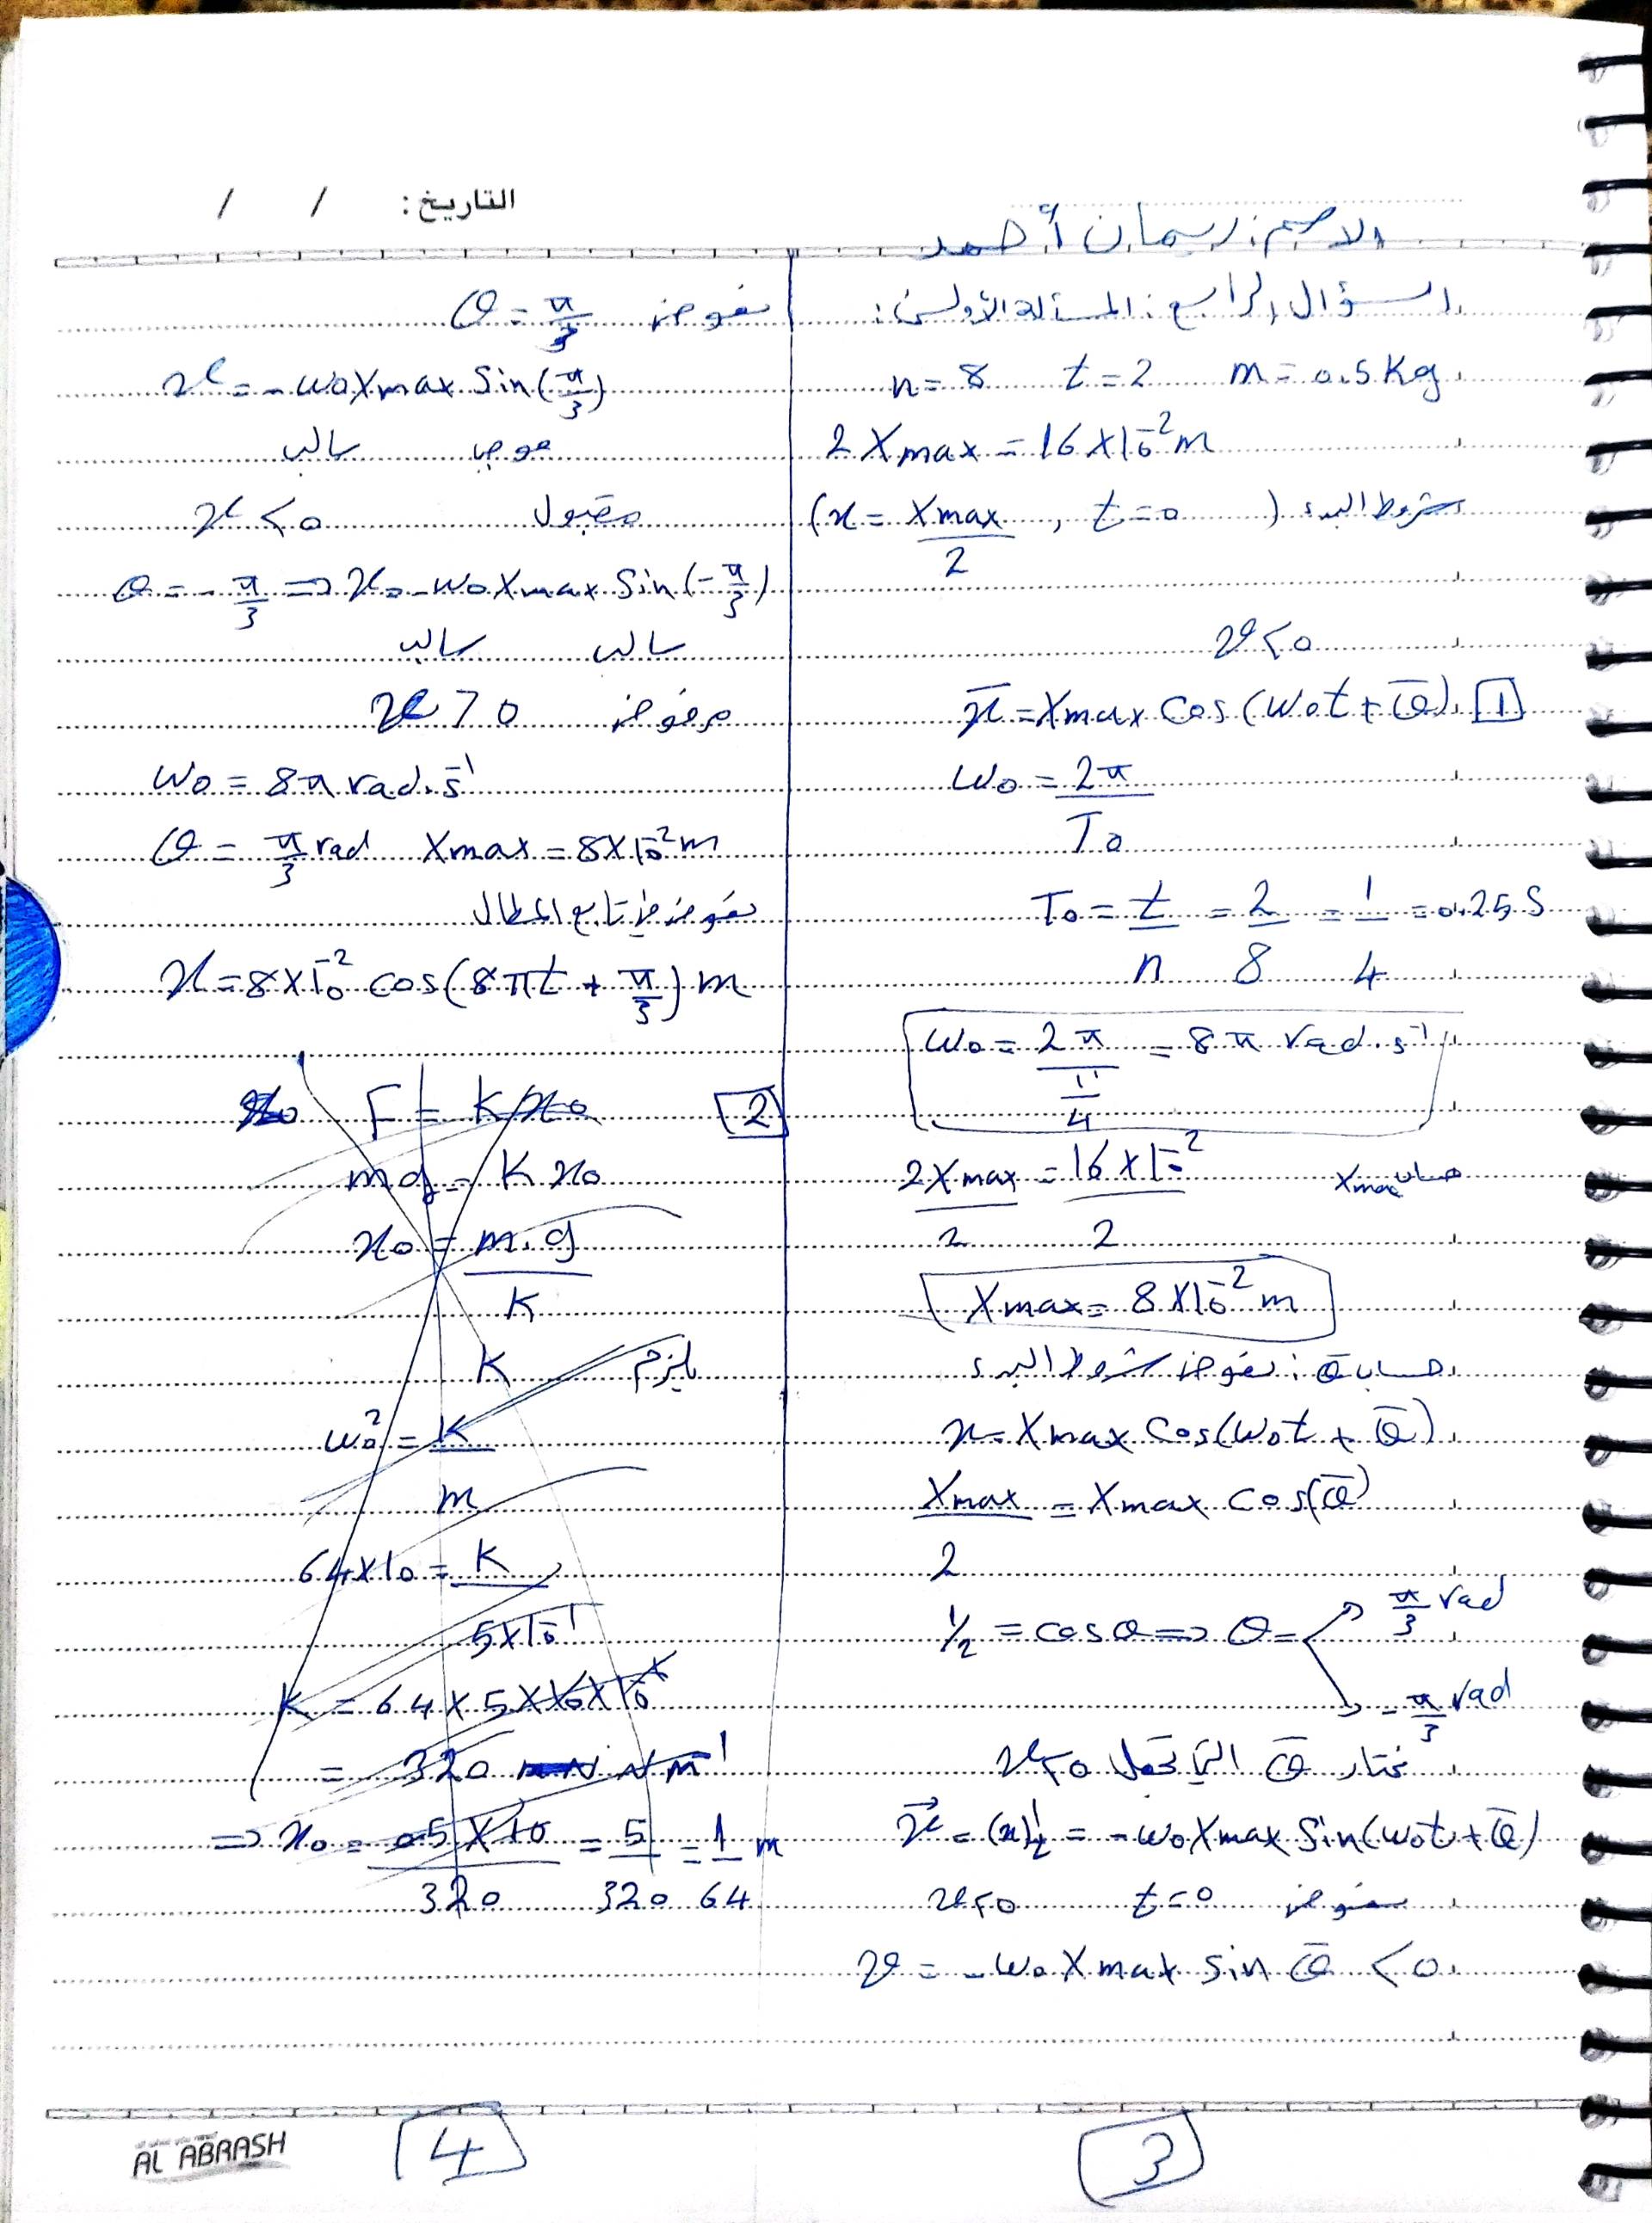 التاريخ: / /
الاسم: ريمان أحمد
السؤال الرابع: المسألة الأولى:
n = 8 t = 2 m = 0.5 Kg
2 Xmax = 16 × 10⁻² m
شروط البدء (x = Xmax/2 , t = 0)
v < 0
[1] x̄ = Xmax cos(ω₀t + φ̄)
ω₀ = 2π/T₀
T₀ = t/n = 2/8 = 1/4 = 0.25 s
ω₀ = 2π/(1/4) = 8π rad.s⁻¹
حساب Xmax 2Xmax/2 = 16 × 10⁻²/2
Xmax = 8 × 10⁻² m
حساب φ̄: نعوض شروط البدء
x = Xmax cos(ω₀t + φ̄)
Xmax/2 = Xmax cos(φ̄)
1/2 = cos φ ⇒ φ = π/3 rad
- π/3 rad
نختار φ̄ التي تجعل v < 0
v⃗ = (x)'t = -ω₀ Xmax sin(ω₀t + φ̄)
نعوض t = 0 v < 0
v = -ω₀ Xmax sin φ̄ < 0
3
نعوض φ = π/3
v = -ω₀ Xmax sin(π/3)
موجب سالب
مقبول v < 0
φ = -π/3 ⇒ v = -ω₀ Xmax sin(-π/3)
سالب سالب
مرفوض v > 0
ω₀ = 8π rad.s⁻¹
φ = π/3 rad Xmax = 8 × 10⁻² m
نعوض في تابع المطال
x = 8 × 10⁻² cos(8πt + π/3) m
[2] F = K x₀
mg = K x₀
x₀ = m.g/K
يلزم K
ω₀² = K/m
64 × 10 = K/5 × 10⁻¹
K = 64 × 5 × 10 × 10⁻¹
= 320 N m⁻¹
⇒ x₀ = 0.5 × 10/320 = 5/320 = 1/64 m
4
AL ABRASH